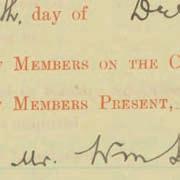 th. day of De
Members on the C
Members Present,
Mr. Wm